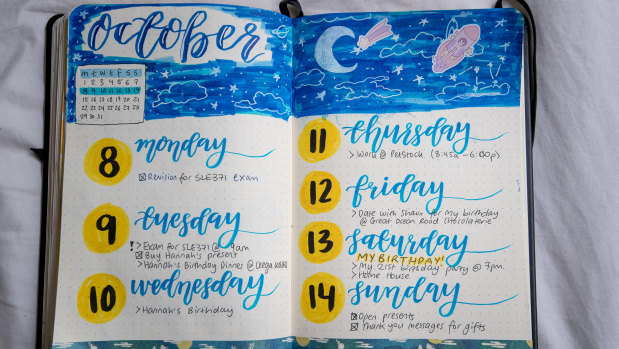 october
m t w t f s s
1 2 3 4 5 6 7
8 9 10 11 12 13 14
15 16 17 18 19 20 21
22 23 24 25 26 27 28
29 30 31
8 monday
Revision for SLE371 exam
9 tuesday
! > Exam for SLE371 @ 9am
Buy Hannah's present
> Hannah's Birthday Dinner @
10 wednesday
> Hannah's Birthday
11 thursday
> Work @ PetStock (8:45a - 6:00p)
12 friday
> Date with Shaun for my birthday
@ Great Ocean Road Chocolaterie
13 saturday
MY BIRTHDAY!
> My 21st birthday party @ 7pm
> Home House
14 sunday
Open presents
Thank you messages for gifts